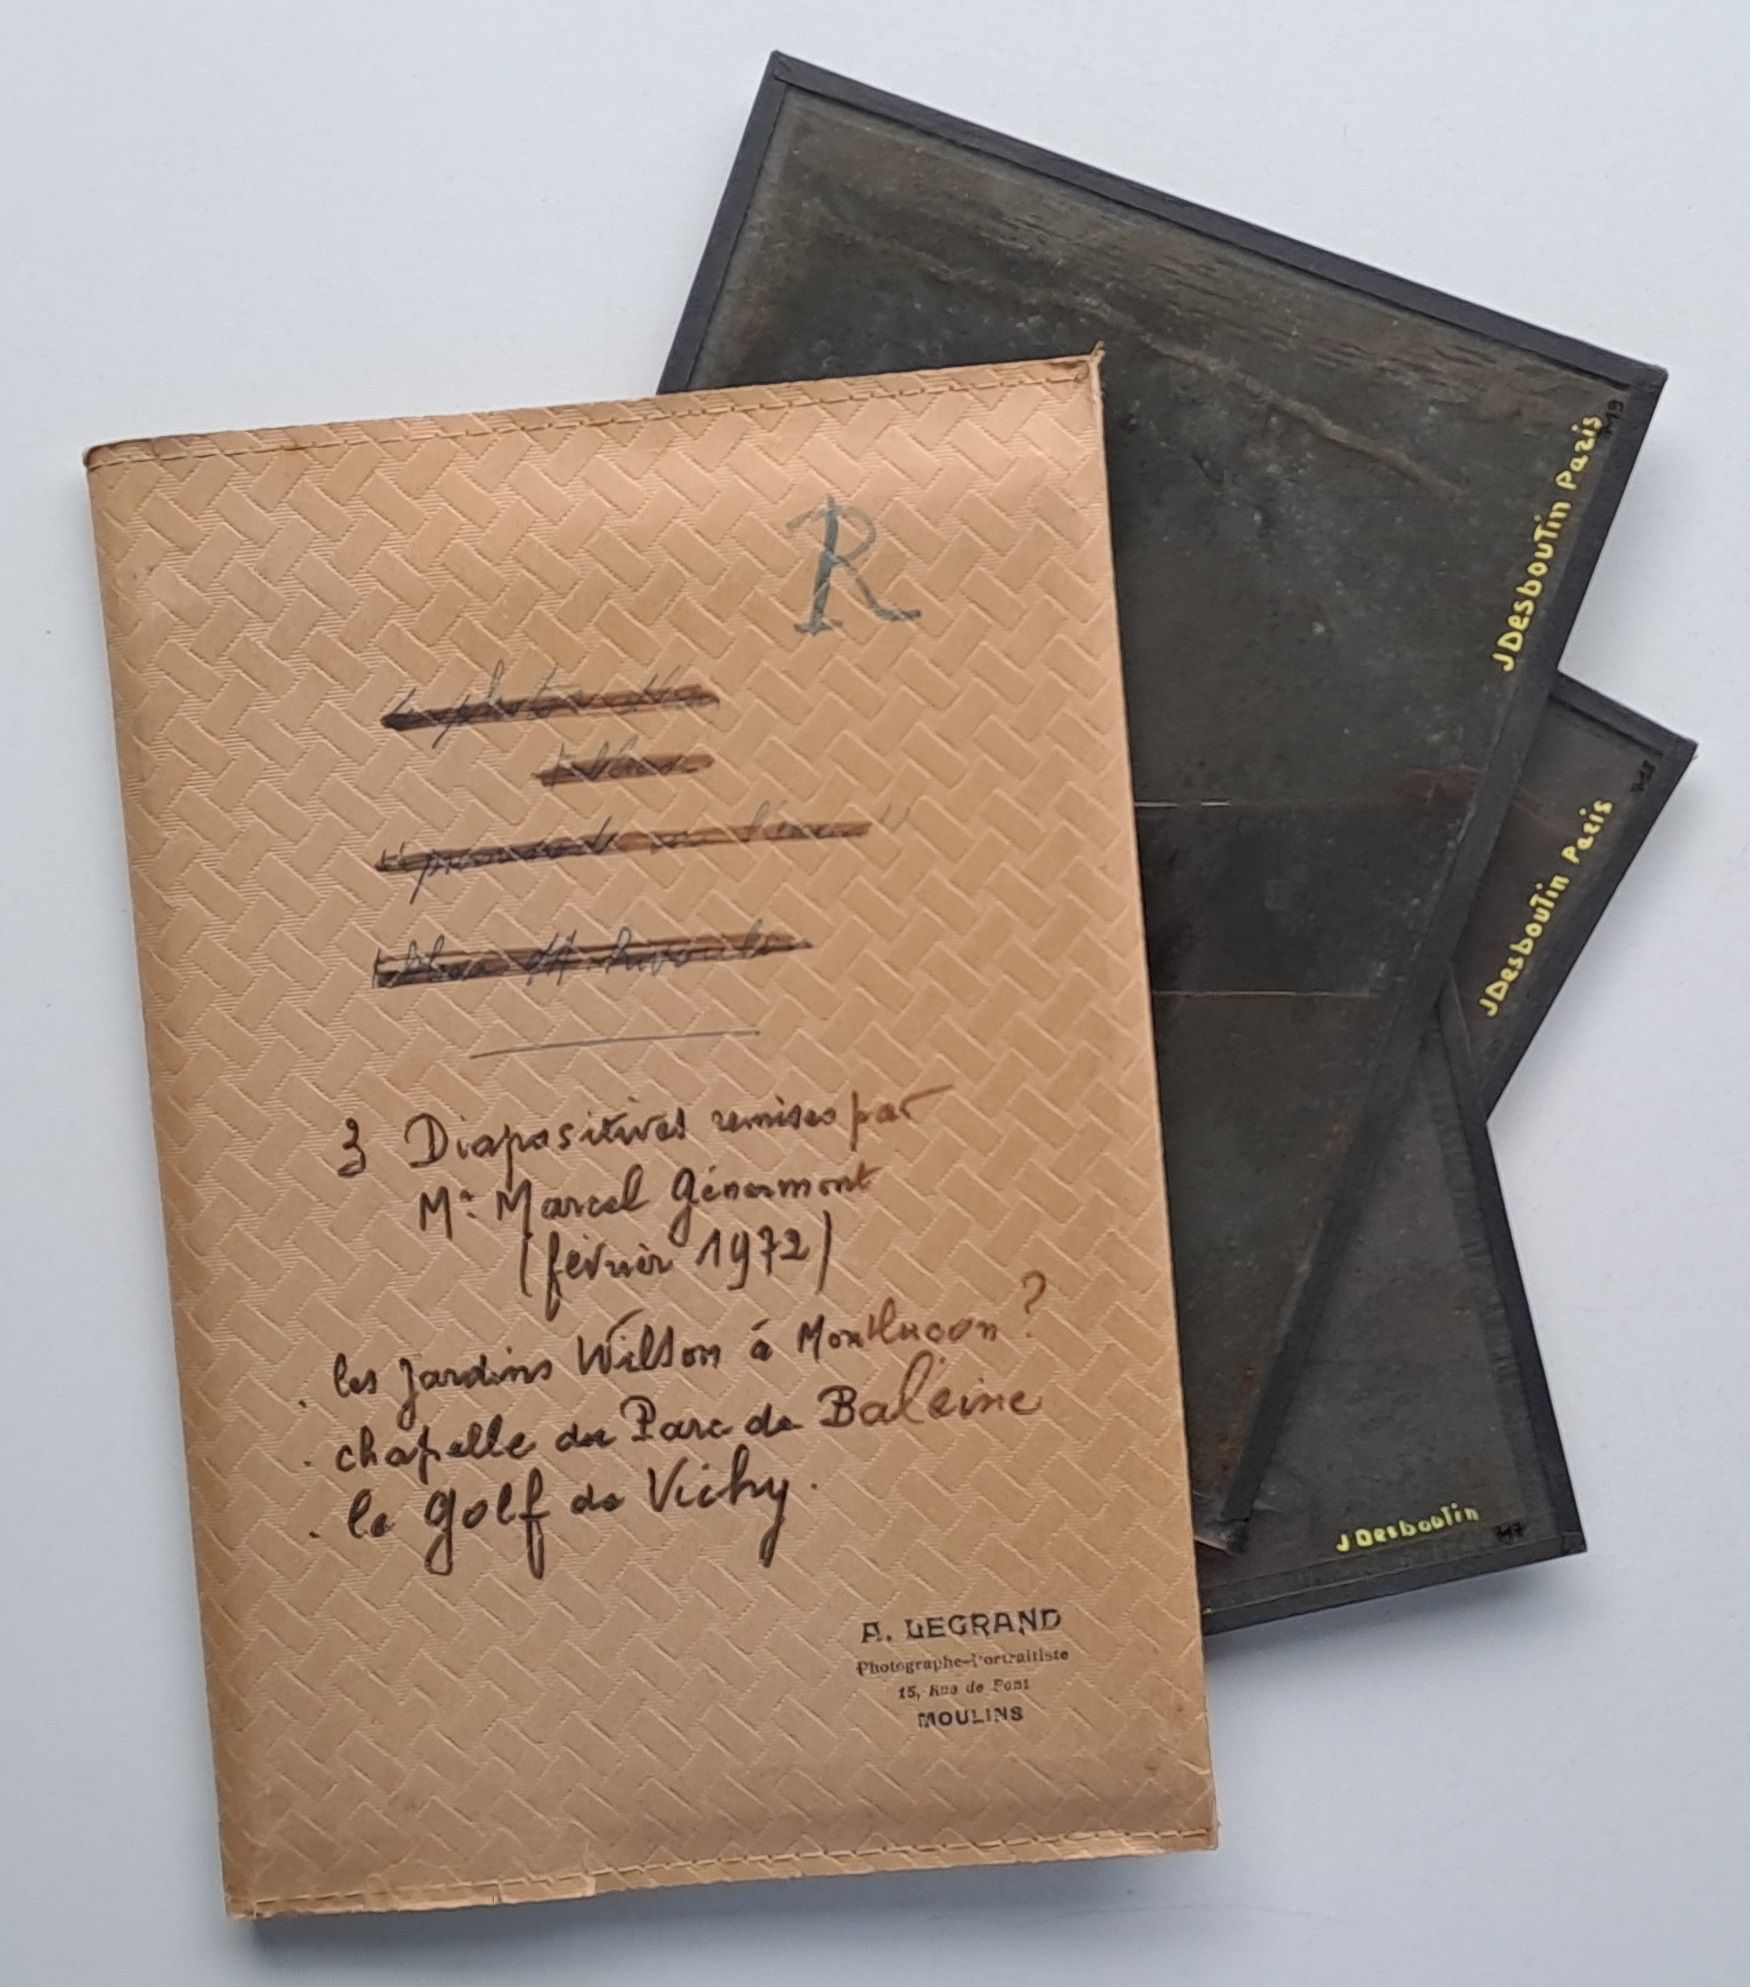 R
3 Diapositives remises par
Mr Marcel Génermont
(février 1972)
. les Jardins Wilson à Montluçon ?
. chapelle du Parc de Baleine
. le golf de Vichy.
A. LEGRAND
Photographe-Portraitiste
15, Rue de Pont
MOULINS
J Desboutin Paris
719
J Desboutin Paris
718
J Desboutin
717